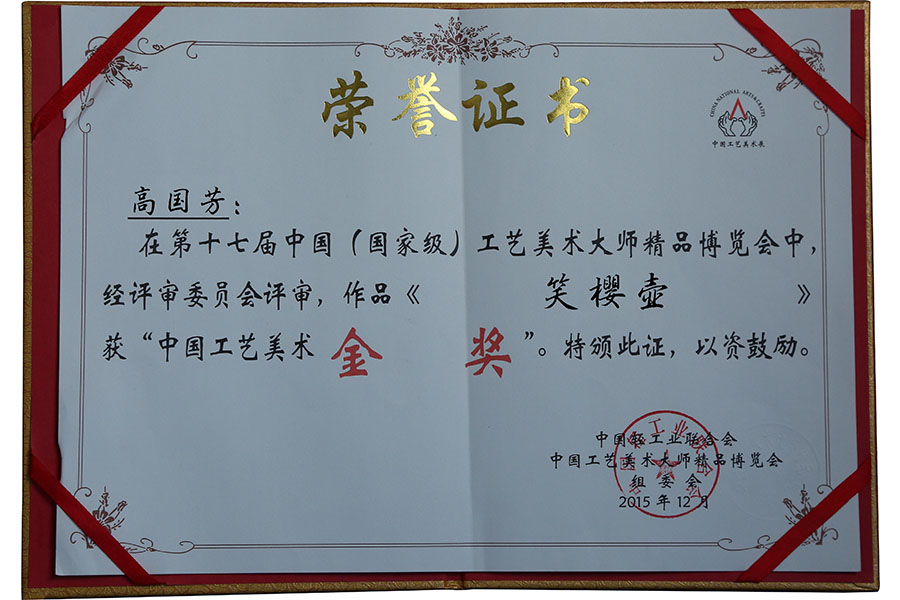 荣誉证书
CHINA NATIONAL ARTS&CRAFTS
中国工艺美术展
高国芳：
在第十七届中国（国家级）工艺美术大师精品博览会中，
经评审委员会评审，作品《 笑樱壶 》
获“中国工艺美术 金 奖”。特颁此证，以资鼓励。
中国轻工业联合会
中国工艺美术大师精品博览会
组委会
2015年12月